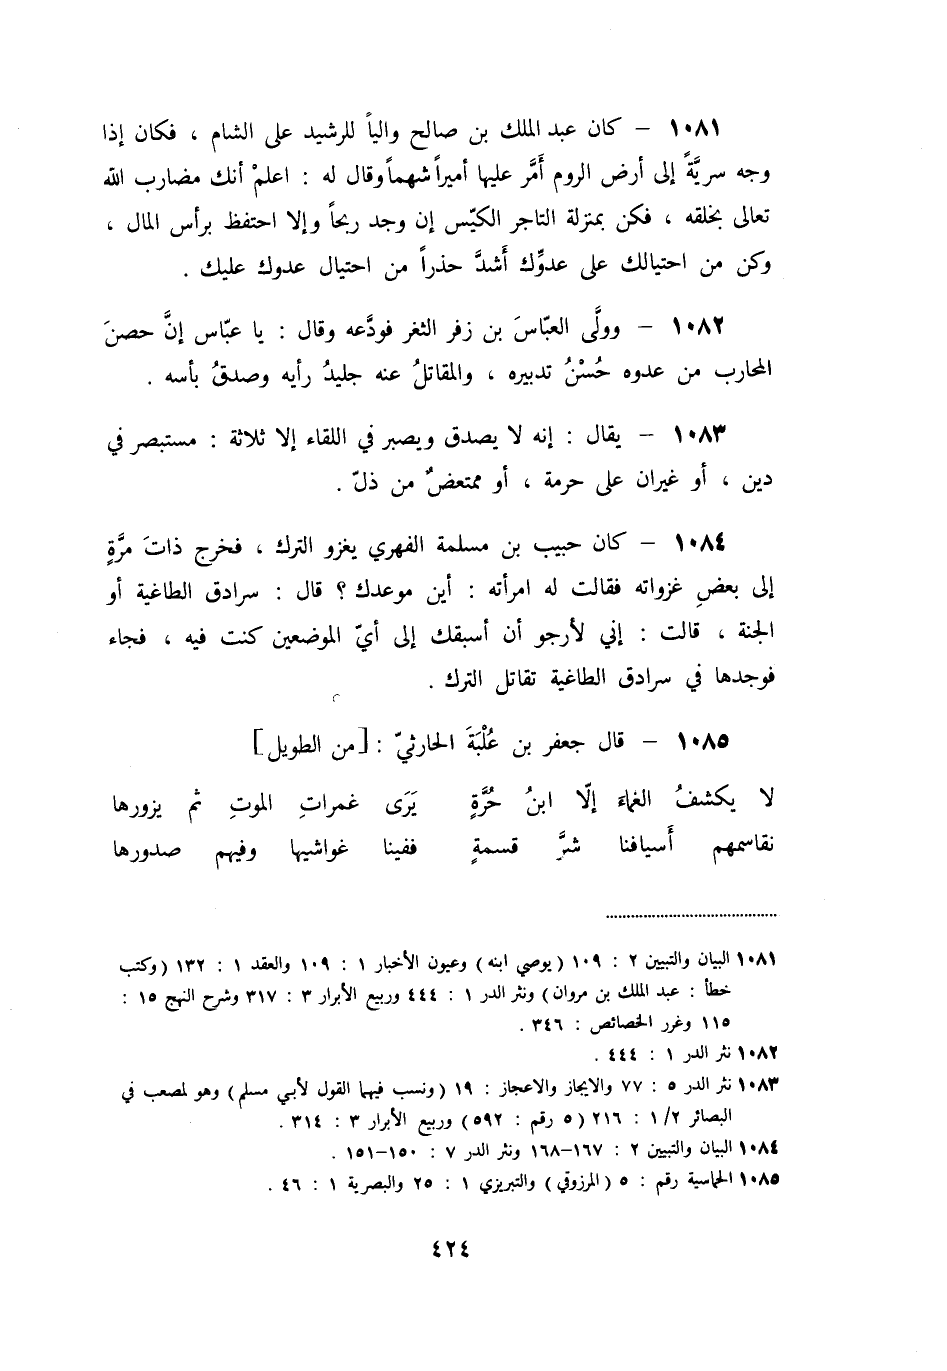 ١٠٨١ – كان عبد الملك بن صالح والياً للرشيد على الشام ، فكان إذا
وجه سريَّةً إلى أرض الروم أَمَّر عليها أميراً شهماً وقال له : اعلمْ أنك مضارب الله
تعالى بخلقه ، فكن بمنزلة التاجر الكيّس إن وجد ربحاً وإلا احتفظ برأس المال ،
وكن من احتيالك على عدوِّك أشدَّ حذراً من احتيال عدوك عليك .
١٠٨٢ – وولَّى العبّاسَ بن زفر الثغر فودَّعه وقال : يا عبّاس إنَّ حصنَ
المحارب من عدوه حُسْنُ تدبيره ، والمقاتلُ عنه جليدُ رأيه وصدقُ بأسه .
١٠٨٣ – يقال : إنه لا يصدق ويصبر في اللقاء إلا ثلاثة : مستبصر في
دين ، أو غيران على حرمة ، أو ممتعضٌ من ذلّ .
١٠٨٤ – كان حبيب بن مسلمة الفهري يغزو الترك ، فخرج ذاتَ مرَّةٍ
إلى بعضِ غزواته فقالت له امرأته : أين موعدك ؟ قال : سرادق الطاغية أو
الجنة ، قالت : إني لأرجو أن أسبقك إلى أيّ الموضعين كنت فيه ، فجاء
فوجدها في سرادق الطاغية تقاتل الترك .
١٠٨٥ – قال جعفر بن عُلْبَةَ الحارثيّ : [من الطويل]
لا يكشفُ الغماءَ إلّا ابنُ حُرَّةٍ يَرَى غمراتِ الموتِ ثم يزورها
نقاسمهم أَسيافنا شرَّ قسمةٍ ففينا غواشيها وفيهم صدورها
١٠٨١ البيان والتبيين ٢ : ١٠٩ (يوصي ابنه) وعيون الأخبار ١ : ١٠٩ والعقد ١ : ١٣٢ (وكتب
خطأ : عبد الملك بن مروان) ونثر الدر ١ : ٤٤٤ وربيع الأبرار ٣ : ٣١٧ وشرح النهج ١٥ :
١١٥ وغرر الخصائص : ٣٤٦ .
١٠٨٢ نثر الدر ١ : ٤٤٤ .
١٠٨٣ نثر الدر ٥ : ٧٧ والايجاز والاعجاز : ١٩ (ونسب فيها القول لأبي مسلم) وهو لمصعب في
البصائر ٢/ ١ : ٢١٦ (٥ رقم : ٥٩٢) وربيع الأبرار ٣ : ٣١٤ .
١٠٨٤ البيان والتبيين ٢ : ١٦٧–١٦٨ ونثر الدر ٧ : ١٥٠–١٥١ .
١٠٨٥ الحماسية رقم : ٥ (المرزوقي) والتبريزي ١ : ٢٥ والبصرية ١ : ٤٦ .
٤٢٤